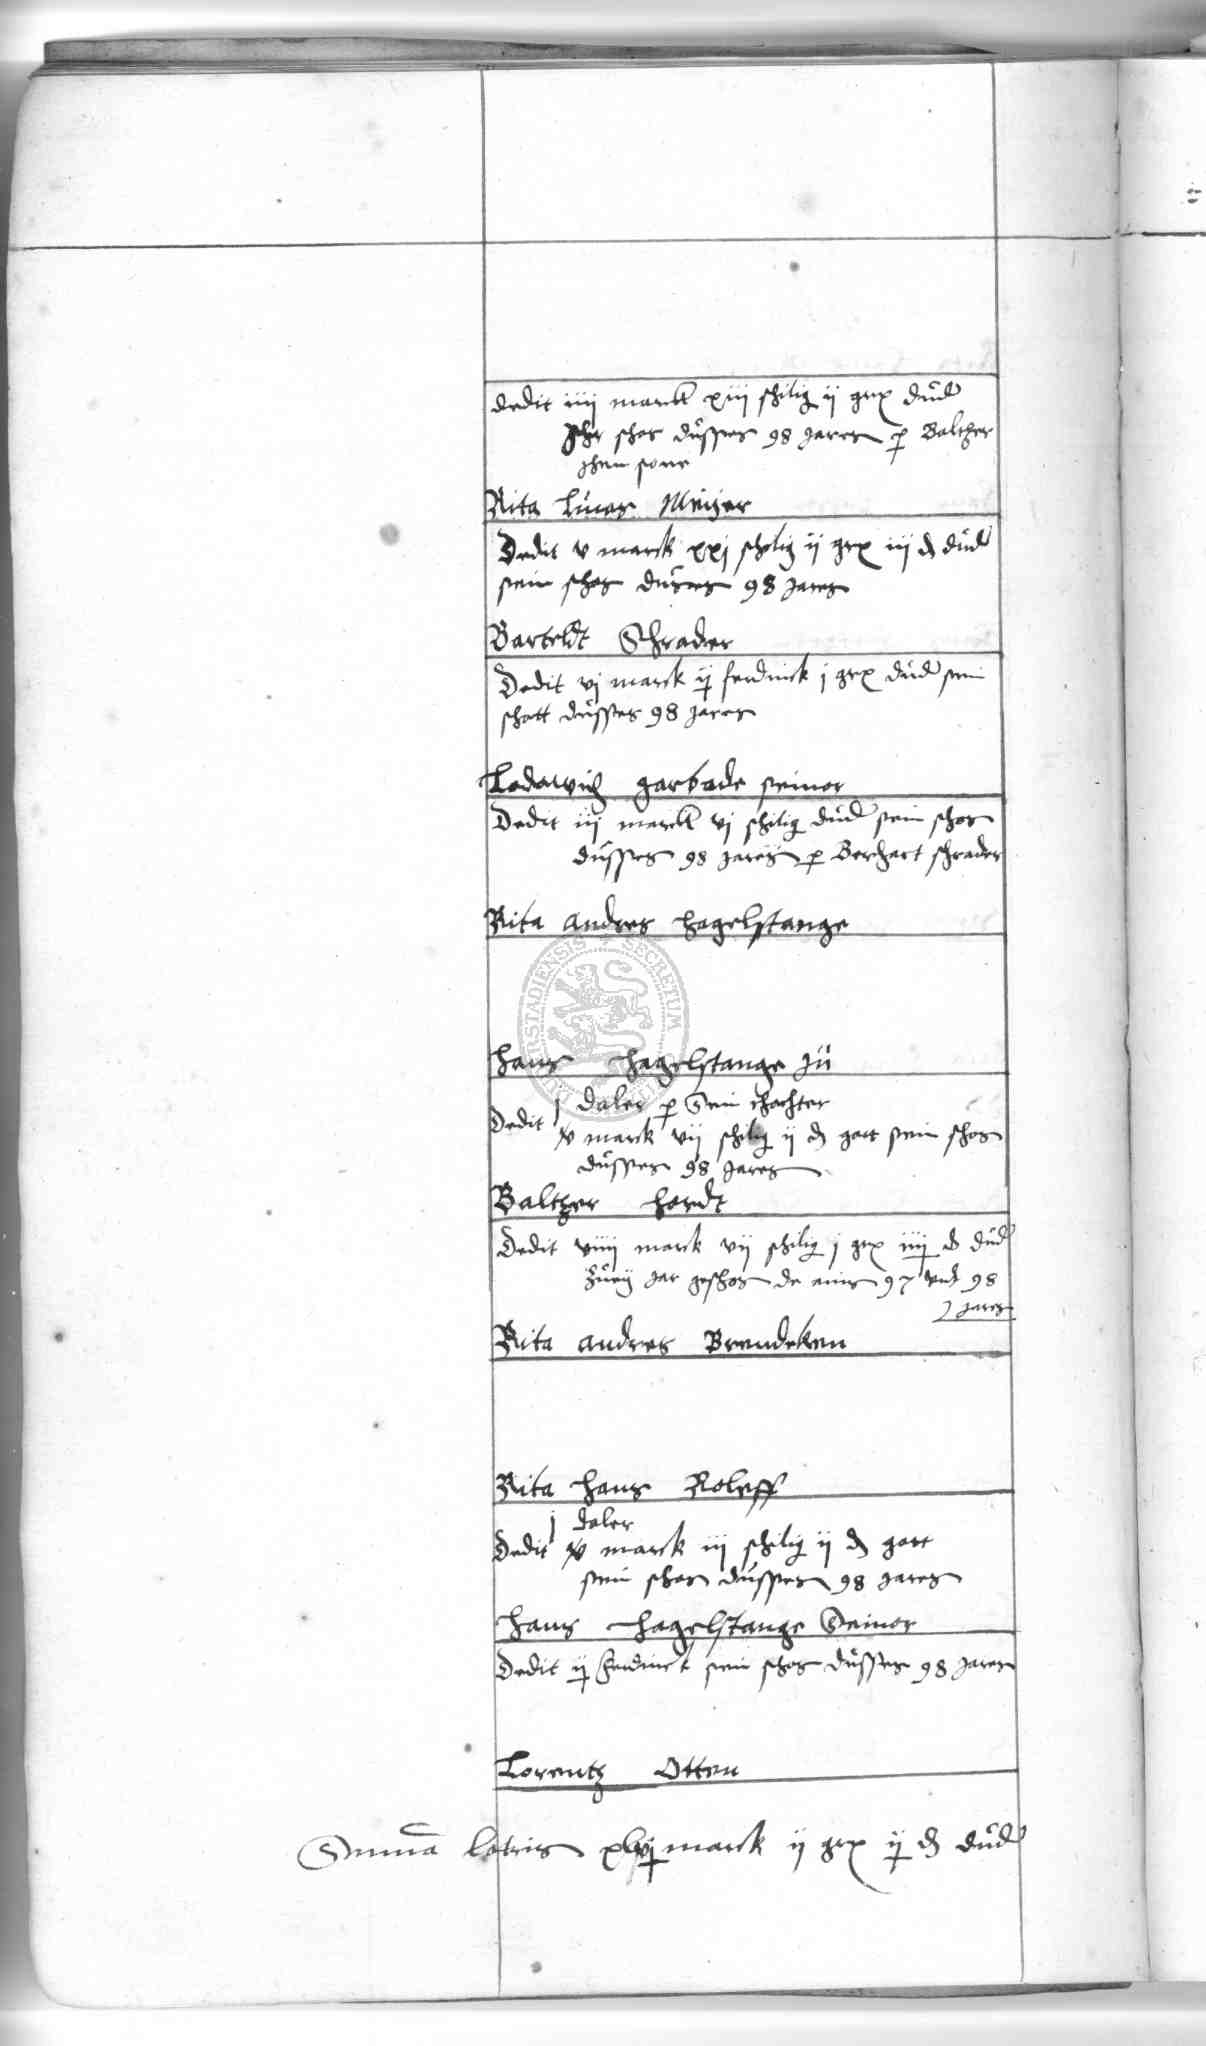 dedit iiii marck xiii schilig ii grx dud
jhr schos dusses 98 jares p Baltzer
jhem sone
Rita Lucas Meijer
Dedit v marck xxj schilig ii grx iii d dud
sein schos duses 98 jares
Barteldt Schrader
Dedit vj marck ij ferdinck j grx dud sein
schott dusses 98 jares
Lodewich garbade seinor
Dedit iii marck vj schilig dud sein schos
dusses 98 jares p Berhart schrader
Rita andres hagelstange
hans hagelstange Ju
j daler p Sein thochter
Dedit v marck vii schilig ii d gort sein schos
dusses 98 jares
Baltzer hordt
Dedit viiii marck vii schilig j grx iiij d dud
zueij jar geschos de anis 97 und 98
jares
Rita andres Brendeken
Rita hans Roleff
j daler
Dedit v marck iii schilig ii d gort
sein schos dusses 98 jares
hans hagelstange Seinor
Dedit ij ferdinck sein schos dusses 98 jares
Lorentz Otten
Summa latris marck ij grx ij d dud